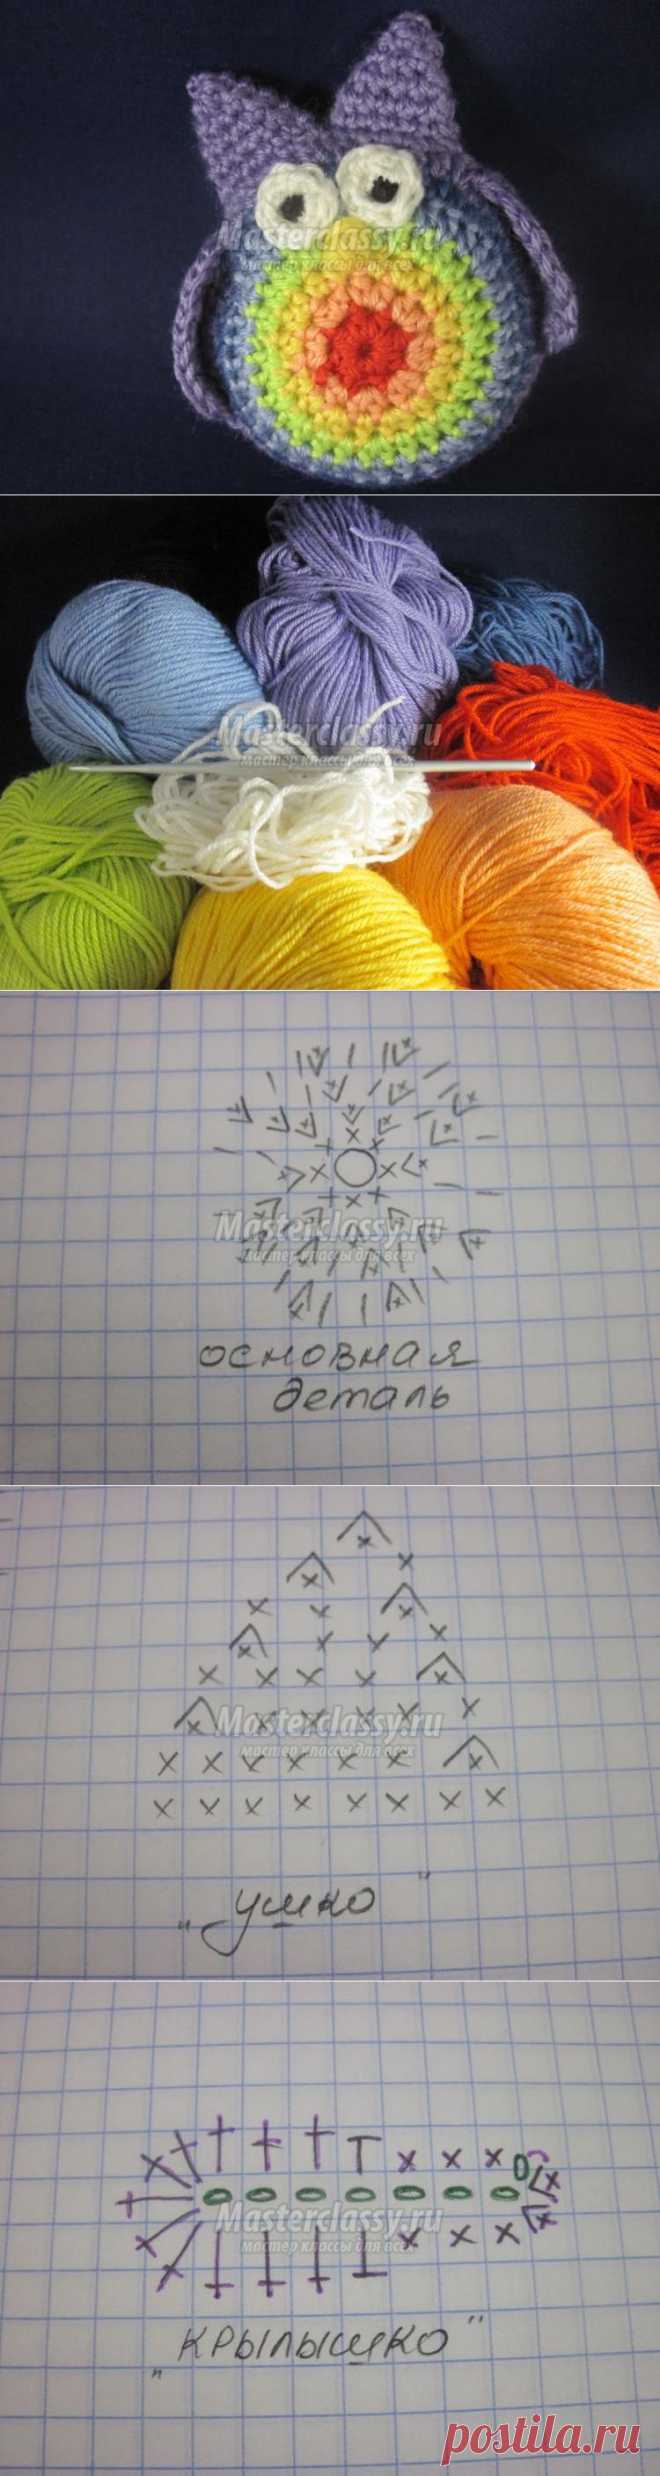 Masterclassy.ru
мастер классы для всех
Masterclassy.ru
мастер классы для всех
Masterclassy.ru
мастер классы для всех
основная
деталь
Masterclassy.ru
мастер классы для всех
„ушко"
Masterclassy.ru
мастер классы для всех
„крылышко"
postila.ru